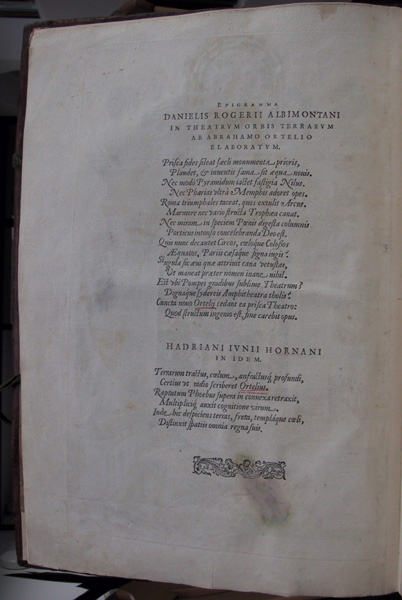 EPIGRAMMA
DANIELIS ROGERII ALBIMONTANI
IN THEATRVM ORBIS TERRARVM
AB ABRAHAMO ORTELIO
ELABORATVM.
Prisca fides sileat sæcli monumenta prioris,
Plaudet, & inuentis fama sit æqua nouis.
Nec modò Pyramidum iactet fastigia Nilus,
Nec Pharias vltrà Memphis adoret opes.
Roma triumphales taceat, quos extulit Arcus,
Marmore nec vario structa Trophæa canat.
Nec mirum in speciem Pœnis digesta columnis
Porticus intonso concelebranda Deo est.
Quis nunc decantet Circos, cœloque Colossos
Æquatos, Pariis cæsaque signa iugis?
Singula sic æui quæ attriuit cana vetustas,
Vt maneat præter nomen inane nihil.
Est vbi Pompei gradibus sublime Theatrum?
Dignaque sydereis Amphitheatra tholis?
Cuncta nouo Ortelij cedant ea prisca Theatro:
Quod structum ingenio est, fine carebit opus.
HADRIANI IVNII HORNANI
IN IDEM.
Terrarum tractus, cœlum, anfractusq; profundi,
Certius vt visu scriberet Ortelius,
Raptatum Phoebus supera in conuexa retraxit,
Multipliciq; auxit cognitione virum.
Inde hic despiciens terras, freta, templáque cœli,
Distinxit spatiis omnia regna suis.